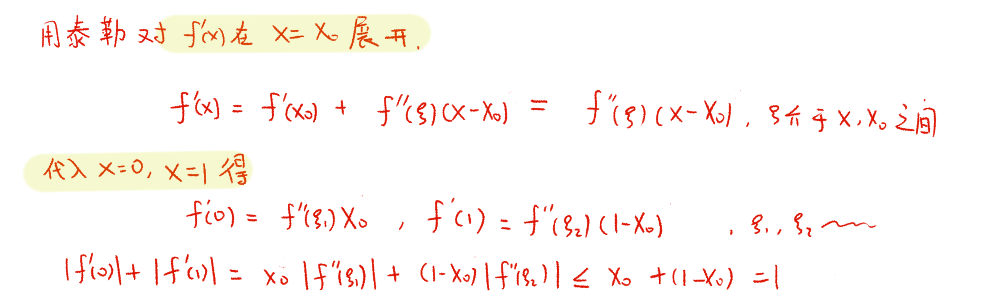 用泰勒对 f'(x) 在 x=x₀ 展开.
f'(x) = f'(x₀) + f''(ξ)(x-x₀) = f''(ξ)(x-x₀), ξ介于 x, x₀ 之间
代入 x=0, x=1 得
f'(0) = f''(ξ₁)x₀ , f'(1) = f''(ξ₂)(1-x₀) , ξ₁, ξ₂ ~~~
|f'(0)| + |f'(1)| = x₀|f''(ξ₁)| + (1-x₀)|f''(ξ₂)| ≤ x₀ + (1-x₀) = 1